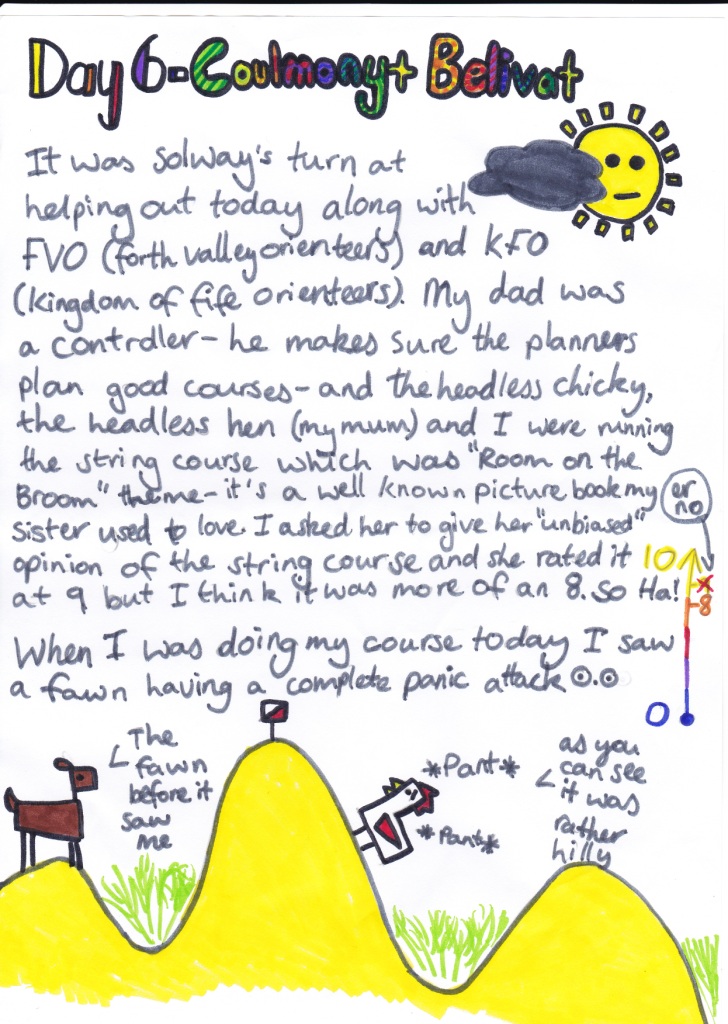 Day 6-Coulmony+ Belivat
It was Solway's turn at
helping out today along with
FVO (forth valley orienteers) and KFO
(kingdom of fife orienteers). My dad was
a controller - he makes sure the planners
plan good courses - and the headless chicky,
the headless hen (my mum) and I were running
the string course which was "Room on the
Broom" theme - it's a well known picture book my
sister used to love. I asked her to give her "unbiased"
opinion of the string course and she rated it
at 9 but I think it was more of an 8. So Ha!
er
no
10
8
0
When I was doing my course today I saw
a fawn having a complete panic attack ⊙.⊙
The
fawn
before it
saw
me
*Pant*
*Pant*
as you
can see
it was
rather
hilly